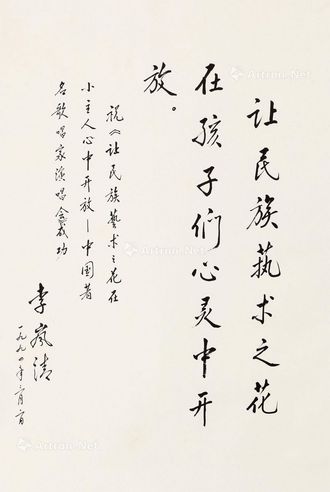 让民族艺术之花
在孩子们心灵中开
放。
祝《让民族藝术之花在
小主人心中开放—中国著
名歌唱家演唱会成功
李岚清
Artron.Net
Artron.Net
Artron.Net
Artron.Net
Artron.Net